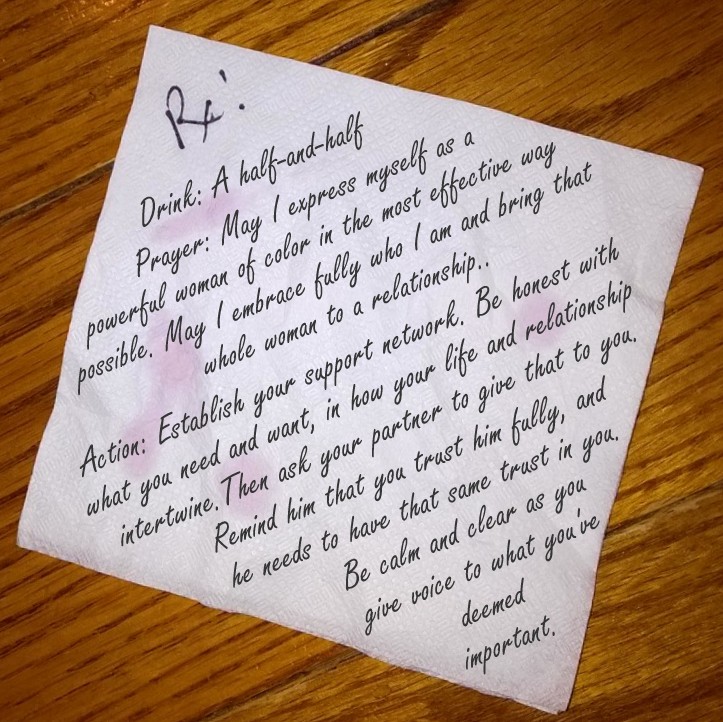 Rx:
Drink: A half-and-half
Prayer: May I express myself as a
powerful woman of color in the most effective way
possible. May I embrace fully who I am and bring that
whole woman to a relationship..
Action: Establish your support network. Be honest with
what you need and want, in how your life and relationship
intertwine. Then ask your partner to give that to you.
Remind him that you trust him fully, and
he needs to have that same trust in you.
Be calm and clear as you
give voice to what you've
deemed
important.